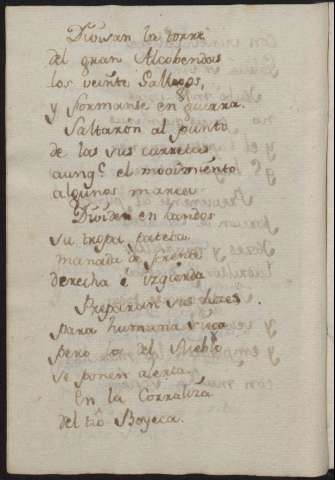 Divisan la torre
del gran Alcobendas
los veinte Gallegos,
y formanse en guerra.
Saltaron al punto
de las sus carretas
aunq.e el movimiento
algunos marea
Dividen en bandos
su tropa
manada de frente
derecha é izquierda
Preparan sus hozes
para humana siega
pero los del Pueblo
se ponen alerta.
En la Corraliza
del tio Boyeca.